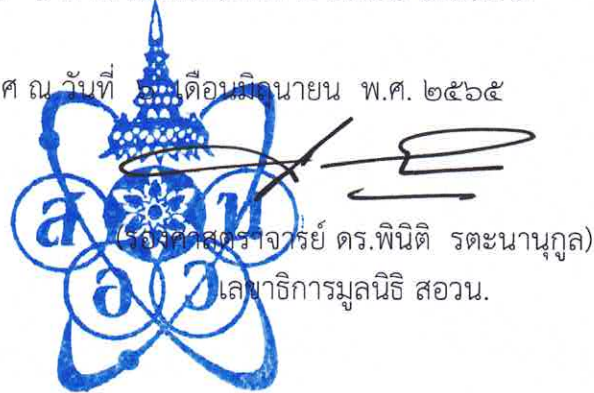 ศ ณ วันที่ เดือนมิถุนายน พ.ศ. ๒๕๖๕
ส อ ว น
(รองศาสตราจารย์ ดร.พินิติ รตะนานุกูล)
เลขาธิการมูลนิธิ สอวน.